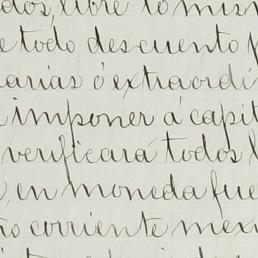 dos, libre lo mis
e todo descuento
arias ó extraordi
imponer á capit
verificará todos l
, en moneda fue
ño corriente mex